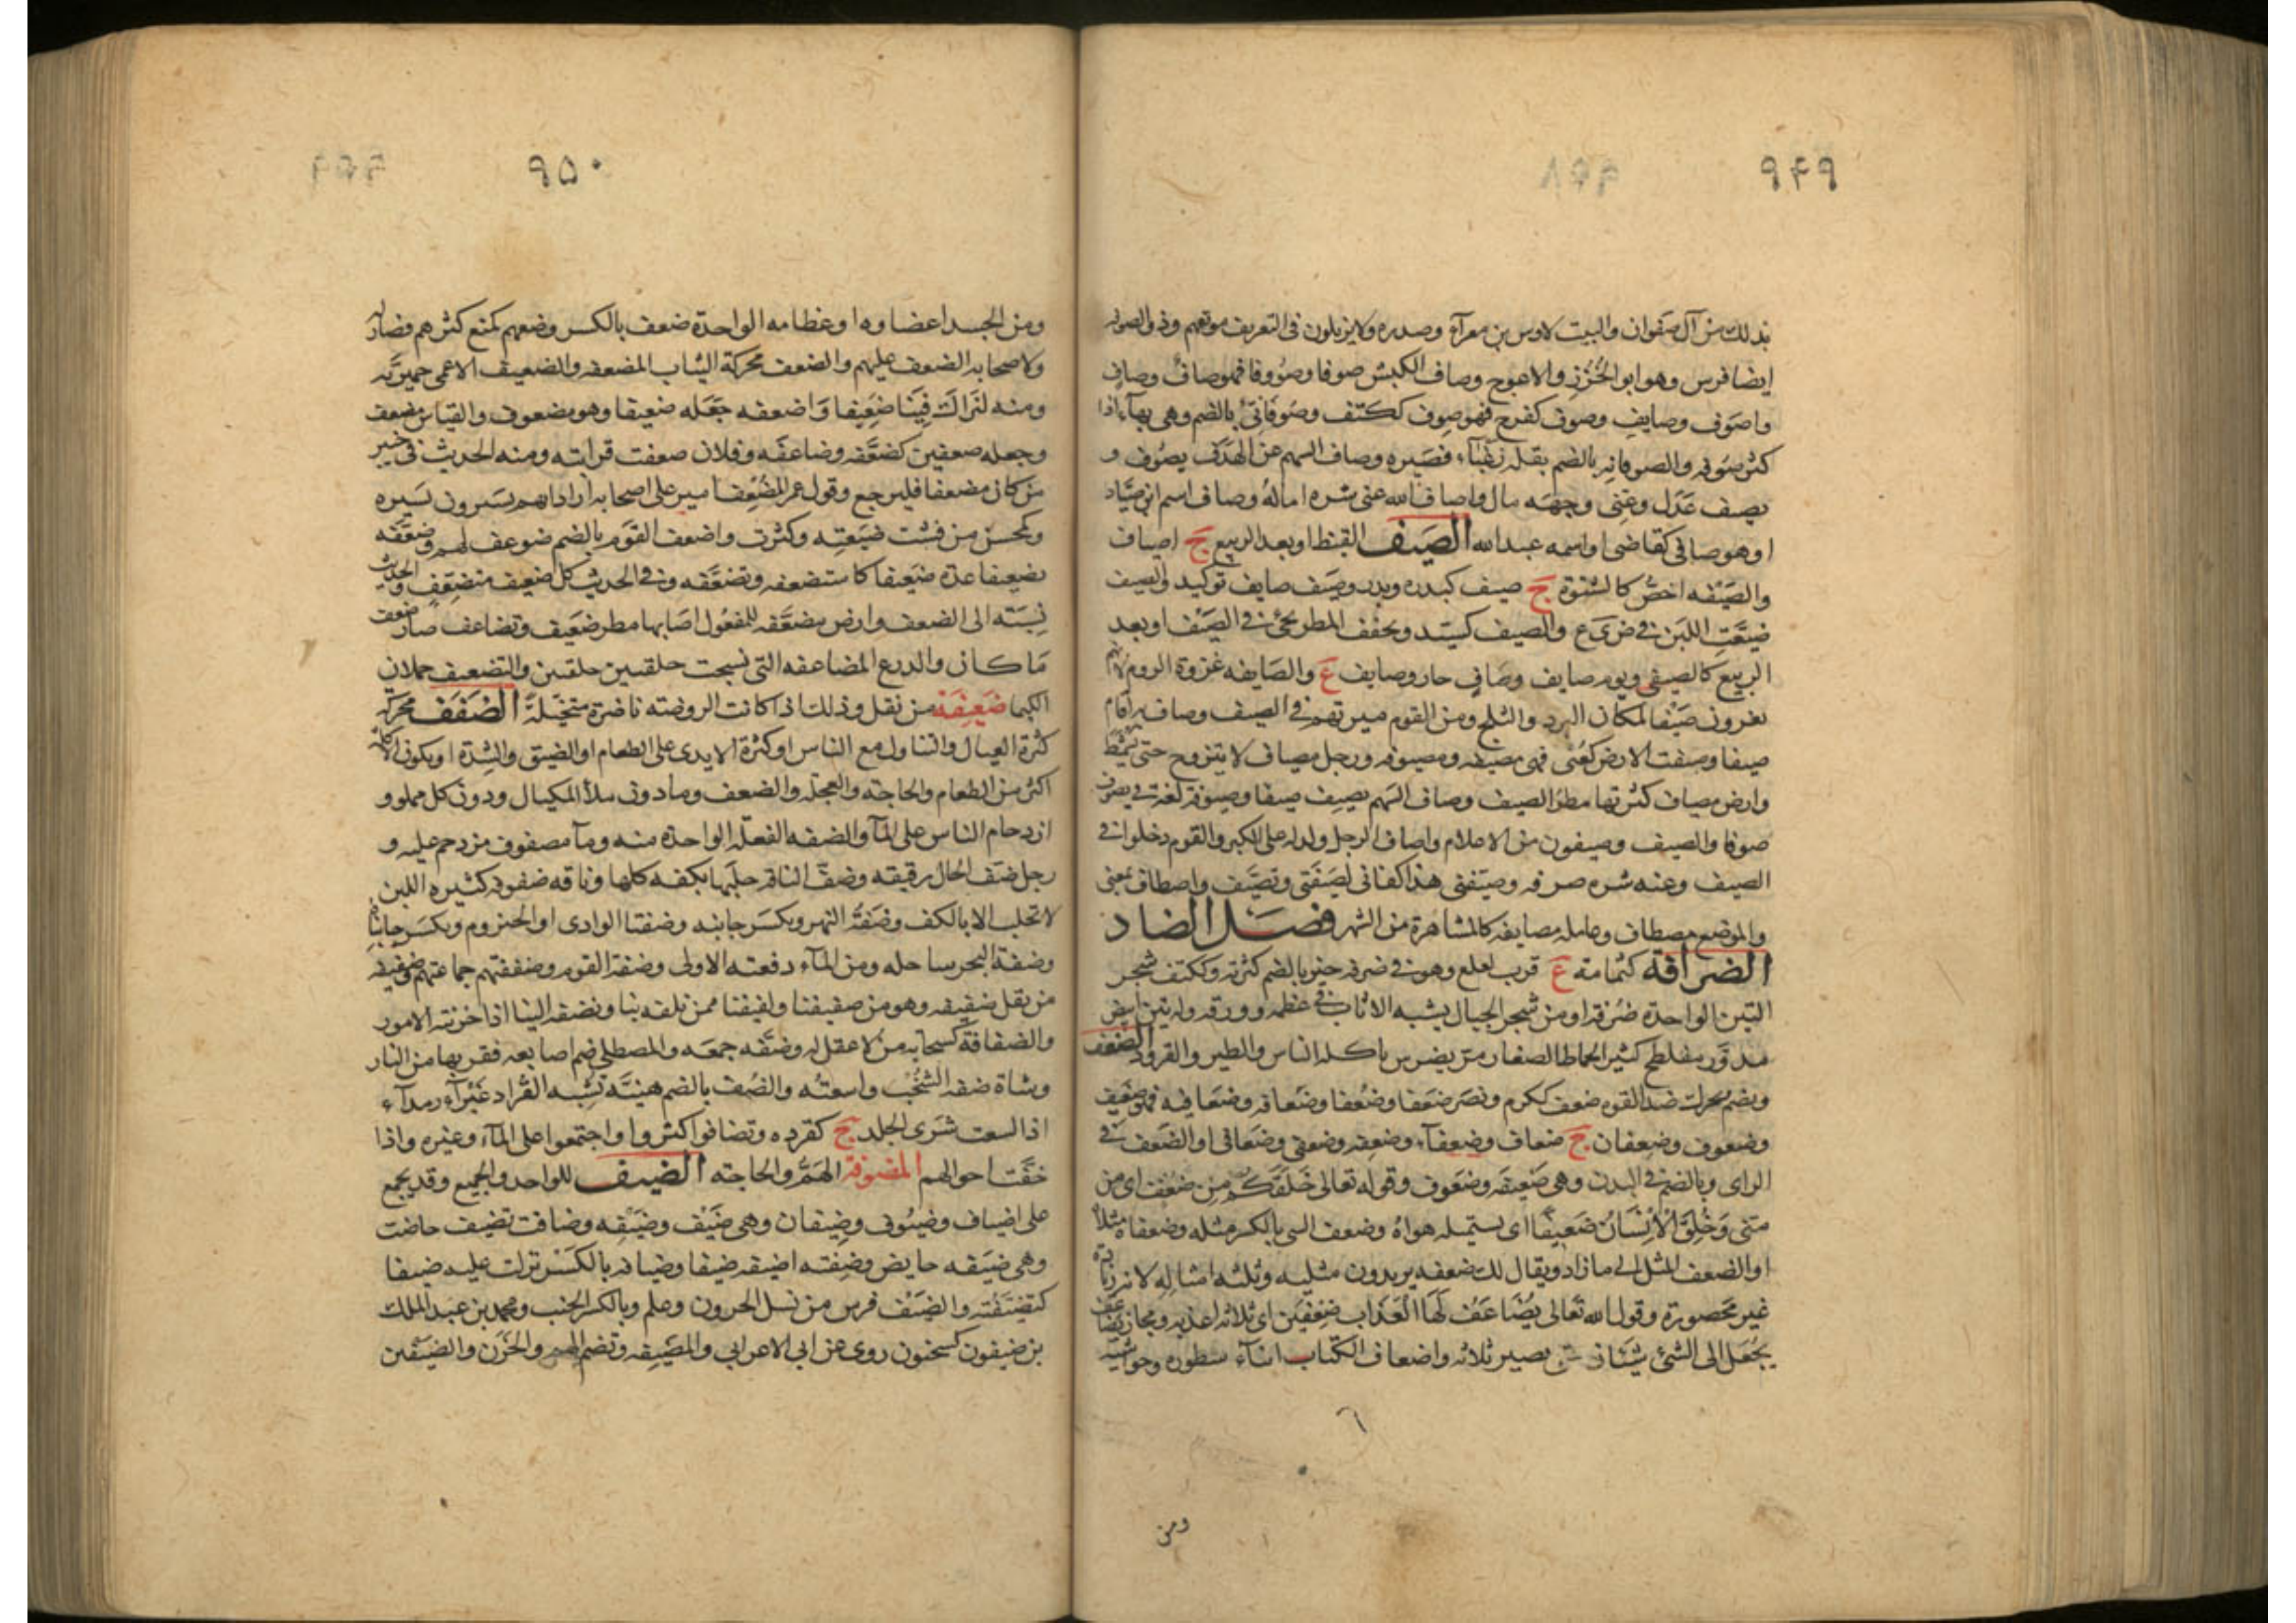 ٩۴٩
بذلك من آل صفوان والبيت لاوس بن مغرآء وصدره ولا يريمون فى التعريف موقفهم وذو الصوفه
ايضا فرس وهو ابو الخُزَز والاعوج وصاف الكبش صوفا وصُووفا فهو صافٌ وصافٍ
واصوف وصايف وصوف كفرح فهو صوف ككتف وصُوفَانىّ بالضم وهى بهآء اذا
كثر صوفه والصوفانه بالضم بقله زغبآء قصيره وصاف السهم عن الهدف يصُوف و
يصيف عَدَل وعنى وجهه مال واصاف الله عنى شره اماله وصاف اسم ابن صيّاد
او هو صافى كقاضى او اسمه عبد الله الصَيف القيظ او بعد الربيع ج اصياف
والصَيْفه اخصُّ كالشتوة ج صيف كبدره وبدر وصَيف صايف توكيد والصيف
ضيَّعَتِ اللبن فى ض ى ع والصيف كسيّد ويخفف المطر يجئ فى الصَيْف او بعد
الربيع كالصيفى ويوم صايف وصافٍ حار وصايف ع والصَايفه غزوة الروم لانهم
يغزون صَيْفا لمكان البرد والثلج ومن القوم ميرتهم فى الصيف وصاف به اقام
صيفا وصيفت الارض كعُنى فهى مصيفه ومصيوفه ورجل مصياف لا يتزوج حتى يشمط
وارض مصياف كثر بها مطر الصيف وصاف السهم يصيف صيفا وصيوفة لغة فى يصوف
صوفا والصيف وصيفون من الاعلام واصاف الرجل ولد له على الكبر والقوم دخلوا فى
الصيف وعنه شره صرفه وصيّفنى هذا كفانى لصَيفَتى وتصَيَّف واصطاف بمعنى
والموضع مصطاف وعامله مصايفه كالمشاهرة من الشهر فصل الضاد
الضرافة كثمامة ع قرب لعلع وهو فى ضرفه خير بالضم كثرته وككتف شجر
التين الواحدة ضَرِفة او من شجر الجبال يشبه الاثاب فى عظمه وورقه وله تين ابيض
مدوَّر مفلطح كتين الحماط الصغار مرّ يضرس ياكله الناس والطير والقرود الضعف
ويضم ويحرك ضد القوه ضعف ككرم ونصر ضَعفا وضُعفا وضَعافه وضَعَافيه فهو ضعيف
وضعوف وضعفان ج ضعاف وضعفآء وضَعِفه وضعفى وضَعَافى او الضَعف فى
الراى وبالضم فى البدن وهى ضَعيفه وضَعوف وقوله تعالى خَلَقَكُم مِن ضُعْفٍ اى من
منى وَخُلِقَ الْاِنْسَانُ ضَعِيفًا اى يستميله هواهُ وضعف الشى بالكسر مثله وضعفاه مثلاه
او الضعف المثل الى ما زاد ويقال لك ضعفه يريدون مثليه وثلثه امثاله لانه زيادة
غير محصورة وقول الله تعالى يُضَاعَفْ لَهَا الْعَذَاب ضِعْفَيْن اى ثلاثه اعذبه ومجاز يضاعف
يجعل الى الشئ شيئان حتى يصير ثلاثه واضعاف الكتاب اثنآء سطوره وحواشيه
ومن
٩۵٠
ومن الجسد اعضاوه او عظامه الواحدة ضعف بالكسر وضعهم كمنع كثرهم فصار له
ولاصحابه الضعف عليهم والضعف محركة الثياب المضعفه والضعيف الاعمى حميريّه
ومنه لَنَرَاكَ فِينَا ضَعِيفا وَاضعفه جَعَله ضعيفا وهو مضعوف والقياس مضعف
وجعله ضعفين كضعَّفه وضاعفه وفلان ضعفت دابته ومنه الحديث فى خيبر
من كان مضعفا فليرجع وقول عمر المُضْعِف امير على اصحابه اراد انهم يسيرون بسيره
وكمحسن من فشت ضيعته وكثرت واضعف القَوم بالضم ضوعف لهم وضعَّفه
تضعيفا عدّه ضَعيفا كاستضعفه وتضعَّفه وفى الحديث كل ضعيف متضعِّف والحديث
نَسَبَه الى الضعف وارض مضعَّفه للمفعُول اصَابها مطر ضعَيف وتضاعف صار ضعف
مَا كان والدرع المضاعفه التى نسجت حلقتين حلقتين والتضعيف حملان
الكيميا ضعيفة من بقل وذلك اذا كانت الروضة ناضرة متخيّلة الضَفَف محركه
كثرة العيال والتناول مع الناس او كثرة الايدى على الطعام او الضيق والشدّة او يكون الاكلة
اكثر من الطعام والحاجته والعجله والضعف وما دون ملأ المكيال ودون كل مملوو
ازدحام الناس على المآ والضفه الفعله الواحدة منه ومآ مضفوف مزدحم عليه و
رجل ضَفّ الحال رقيقه وضفّ الناقه حلَبها بكفه كلها وناقه ضفوف كثيره اللبن
لا تحلب الا بالكف وضَفَّة النهر ويكسَر جانبه وضفتا الوادى او الحيزوم ويكسَر جانباه
وضفة البحر ساحله ومن المآء دفعته الاولى وضفة القوم وضفضفتهم جماعتهم وضفيفه
من بقل ضغيغه وهو من ضفيفنا ولفيفنا ممن نلفه بنا ونضفه الينا اذا حزبته الامور
والضفافة كسحابه من لا عقل له وضفَّه جمعَه والمصطلى ضم اصابعه فقربها من النار
وشاة ضفه الشُخْب واسعته والضُف بالضم هنيَّة تشبه القُراد غَبْرآء رمدآء
اذا لسعت شَرَى الجلد ج كقرده وتضافوا كثروا واجتمعوا على المآء وغيره واذا
خفَّت احوالهم المضوفة الهَمُّ والحاجته الضيف للواحد والجميع وقد يجمع
على اضياف وضيُوف وضيفان وهى ضَيْف وضَيْفه وضافت تضيف حاضت
وهى ضَيفه حايض وضِفته اضيفه ضيفا وضيافه بالكَسْر نزلت عليه ضيفا
كتضَيَّفْته والضَيْف فرس من نسل الحرون وعلم وبالكسر الجنب ومحمد بن عبد الملك
بن ضيفون كسحنون روى عن ابى الاعرابى والمَضيفه وتضم الهم والحُزْن والضَيْفن